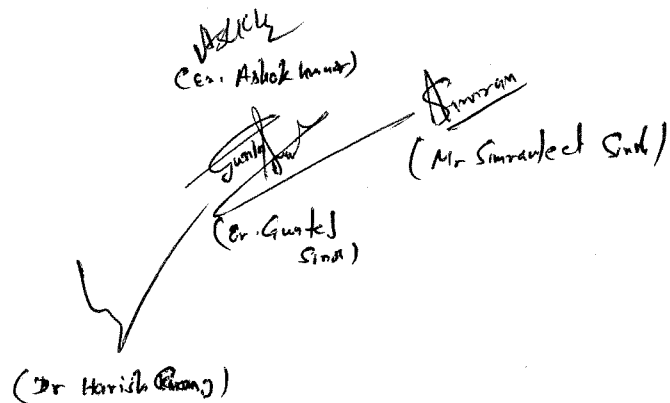 Ashok
(Er. Ashok kumar)
Simran
(Mr Simranjeet Singh)
(Er. Gurtej
Singh)
(Dr Harish